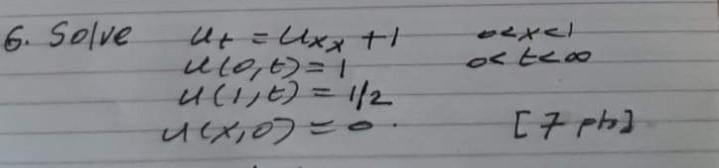 6. Solve u_t = u_xx + 1 0<x<1
u(0,t) = 1 0<t<∞
u(1,t) = 1/2
u(x,0) = 0. [7 pts]